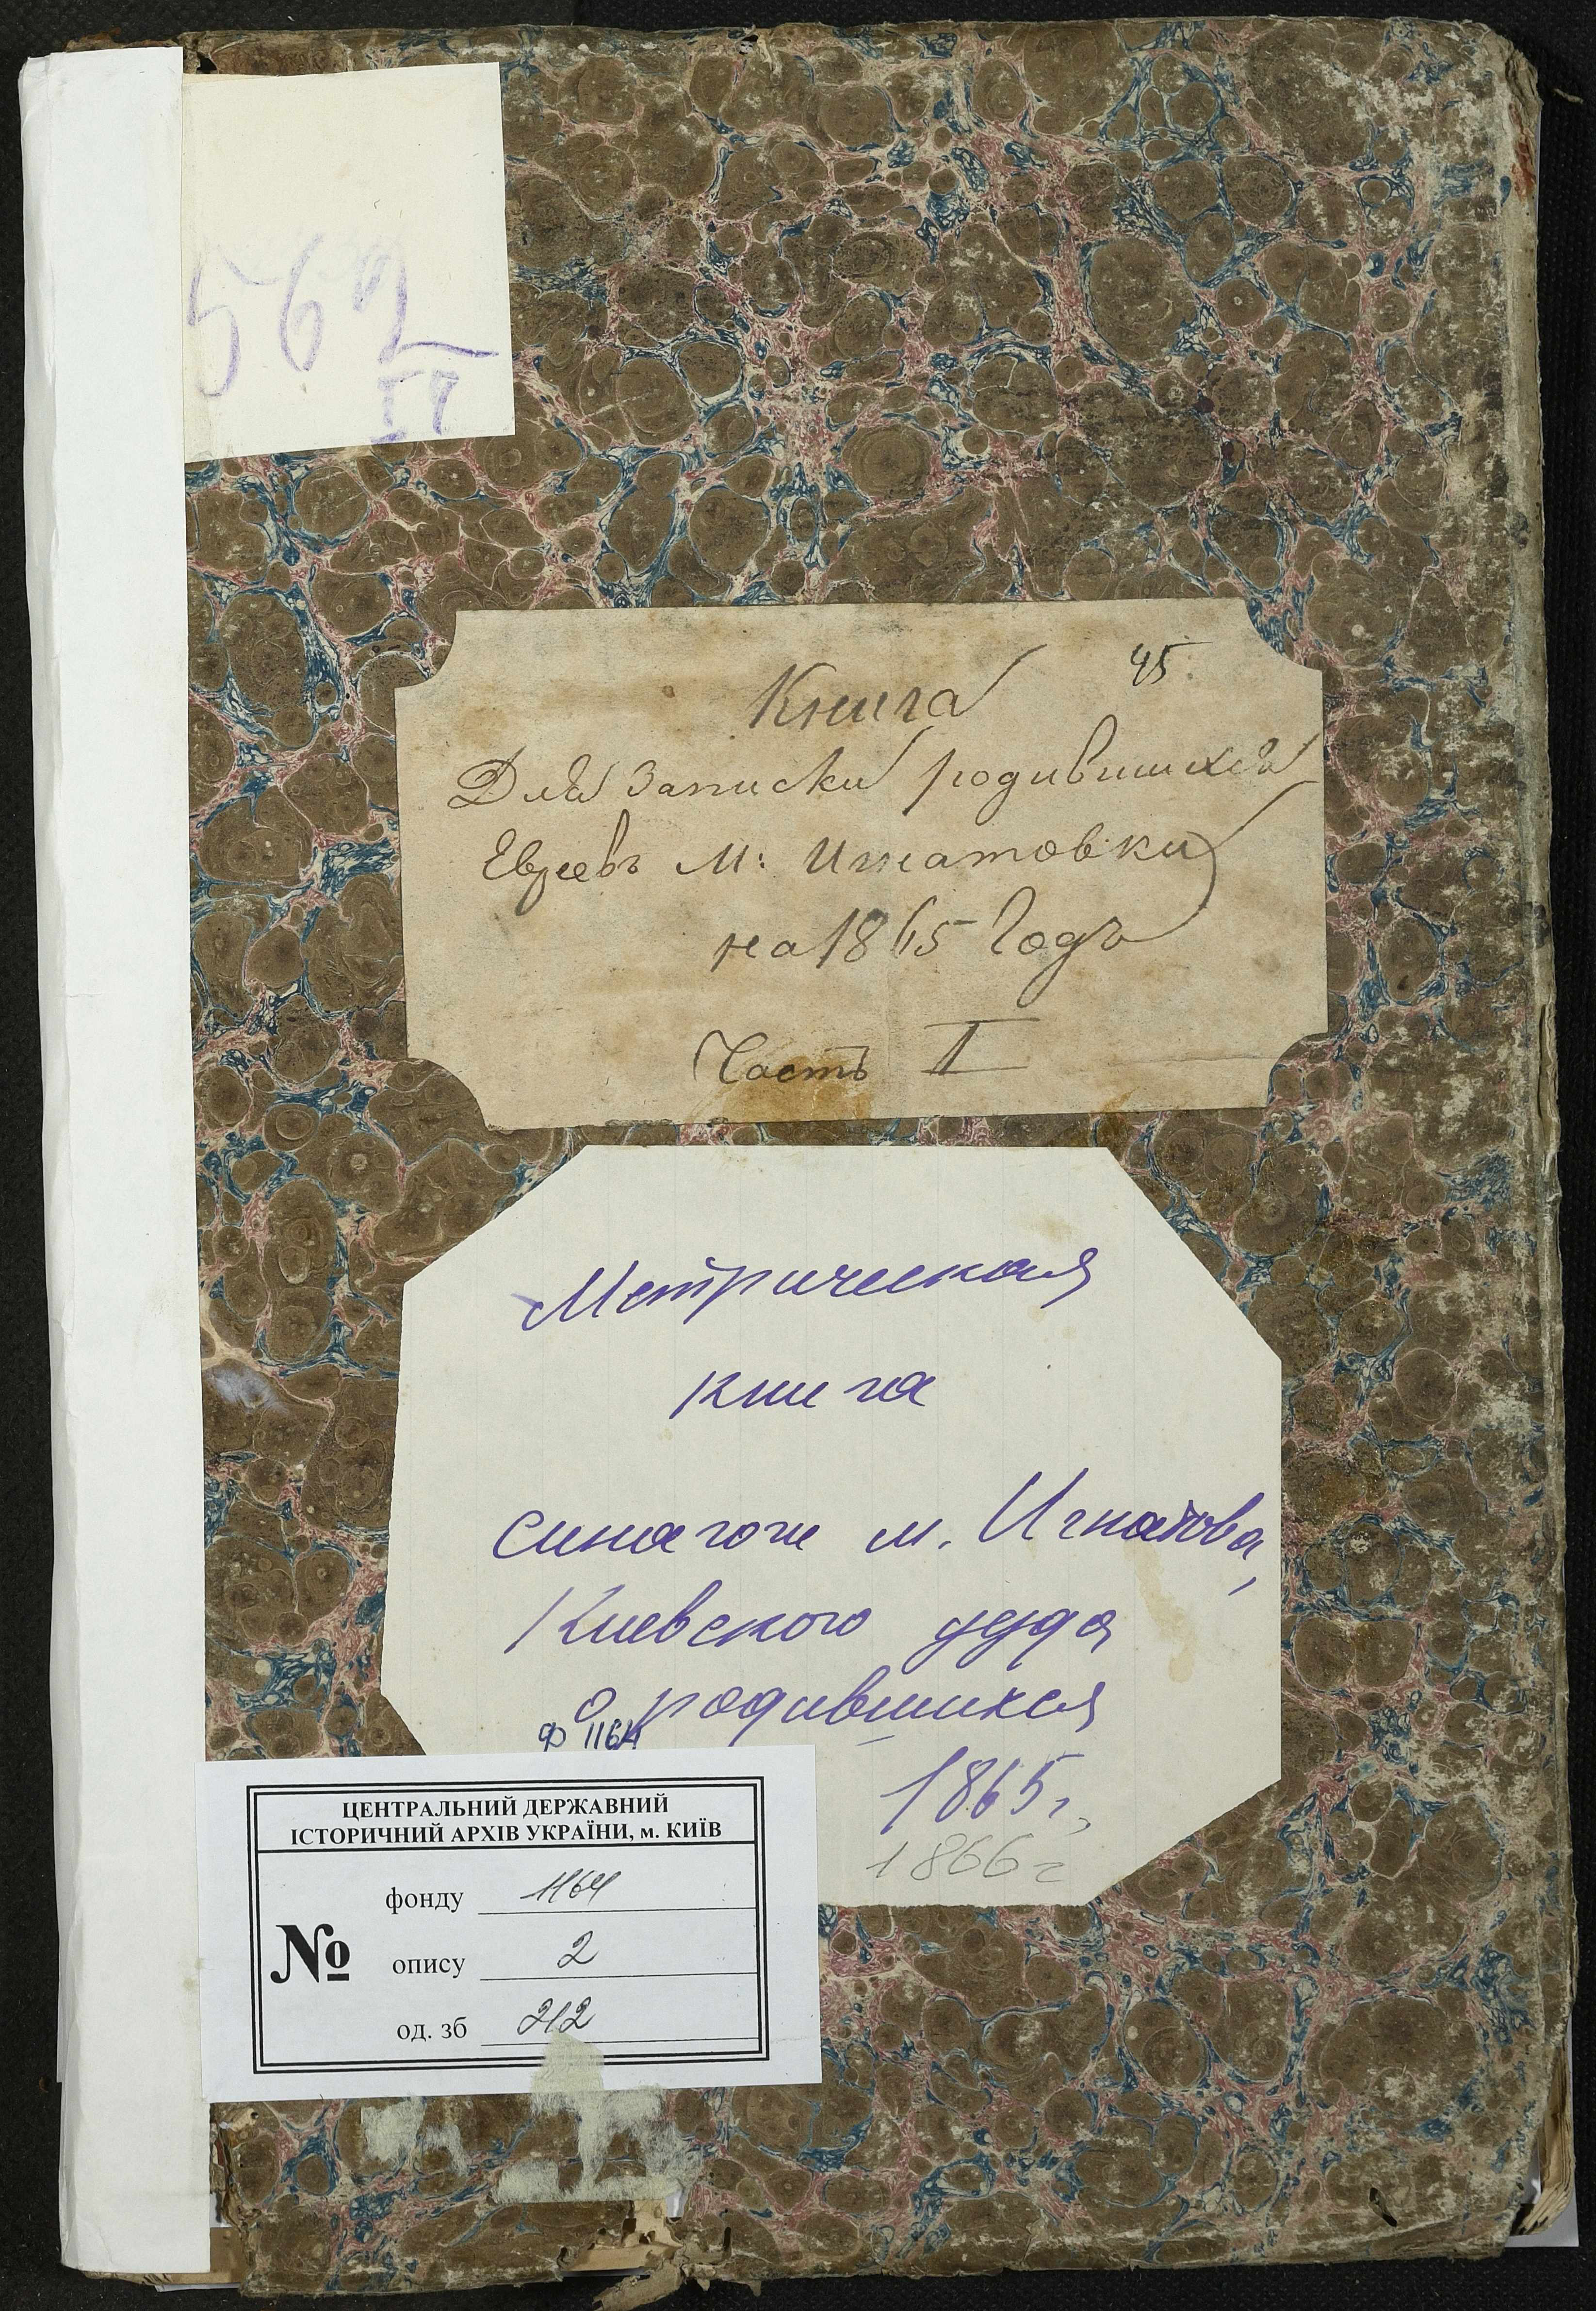 562
II
45.
Книга
Для Записки родившихся
Евреевъ М: Игнатовки
на 1865 Годъ
Часть I
Метрическая
книга
синагоги м. Игнатова,
Киевского уезда
о родившихся
1865 г.
1866 г
Ф 1164
ЦЕНТРАЛЬНИЙ ДЕРЖАВНИЙ
ІСТОРИЧНИЙ АРХІВ УКРАЇНИ, м. КИЇВ
№
фонду 1164
опису 2
од. зб 212